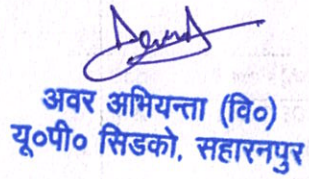 अवर अभियन्ता (वि०)
यू०पी० सिडको, सहारनपुर